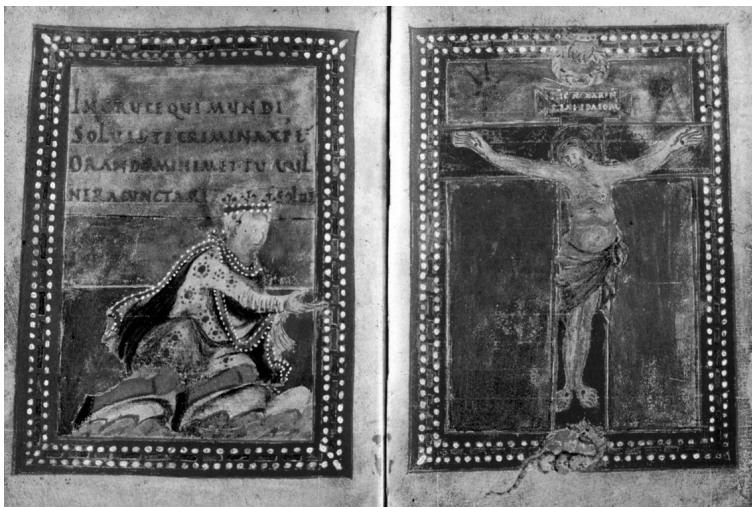 IN CRUCE QUI MUNDI
SOLUISTI CRIMINA XPE
ORANDO MIHIMET TU VUL
NERA CUNCTA